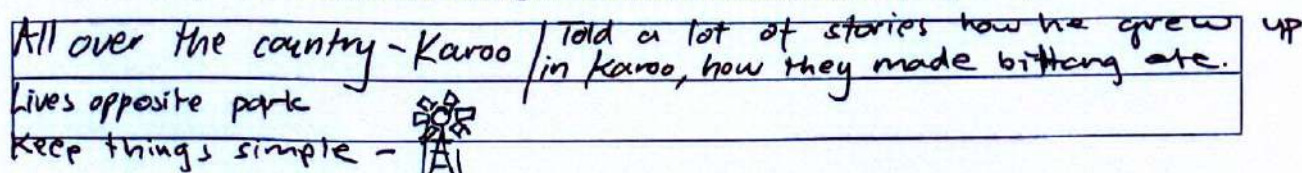 All over the country - Karoo / Told a lot of stories how he grew up
in Karoo, how they made bittang etc.
Lives opposite park
Keep things simple -